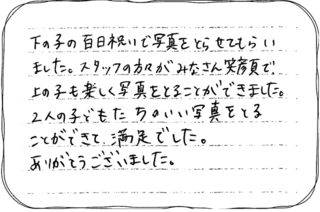 下の子の百日祝いで写真をとらせてもらい
ました。スタッフの方々がみなさん笑顔で、
上の子も楽しく写真をとることができました。
2人の子どもたちのいい写真をとる
ことができて、満足でした。
ありがとうございました。